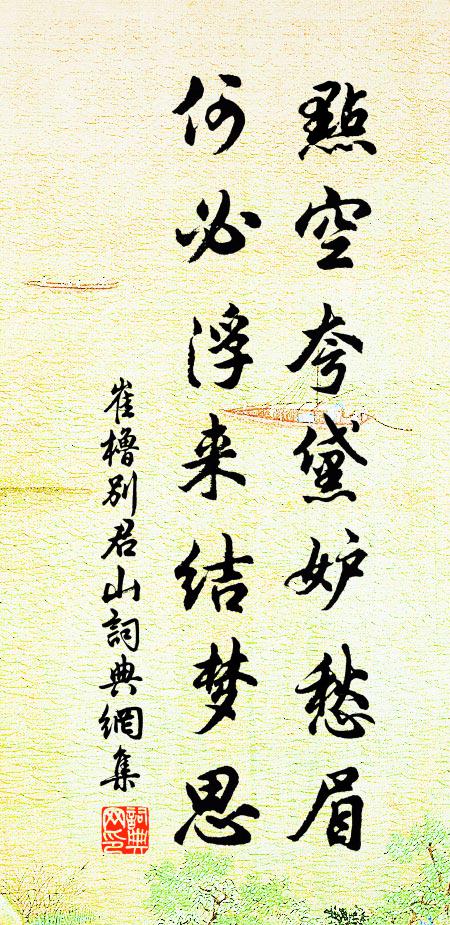 點空夸黛妒愁眉
何必浮来结梦思
崔櫓别君山詞典網集
詞典网印